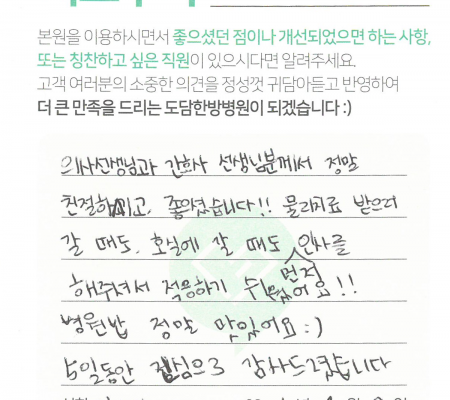 본원을 이용하시면서 좋으셨던 점이나 개선되었으면 하는 사항,
또는 칭찬하고 싶은 직원이 있으시다면 알려주세요.
고객 여러분의 소중한 의견을 정성껏 귀담아듣고 반영하여
더 큰 만족을 드리는 도담한방병원이 되겠습니다 :)
의사선생님과 간호사 선생님분께서 정말
친절하시고, 좋으셨습니다!! 물리치료 받으러
갈 때도, 호실에 갈 때도 인사를
먼저
해주셔서 적응하기 쉬웠어요!!
병원밥 정말 맛있어요 :)
5일동안 진심으로 감사드렸습니다